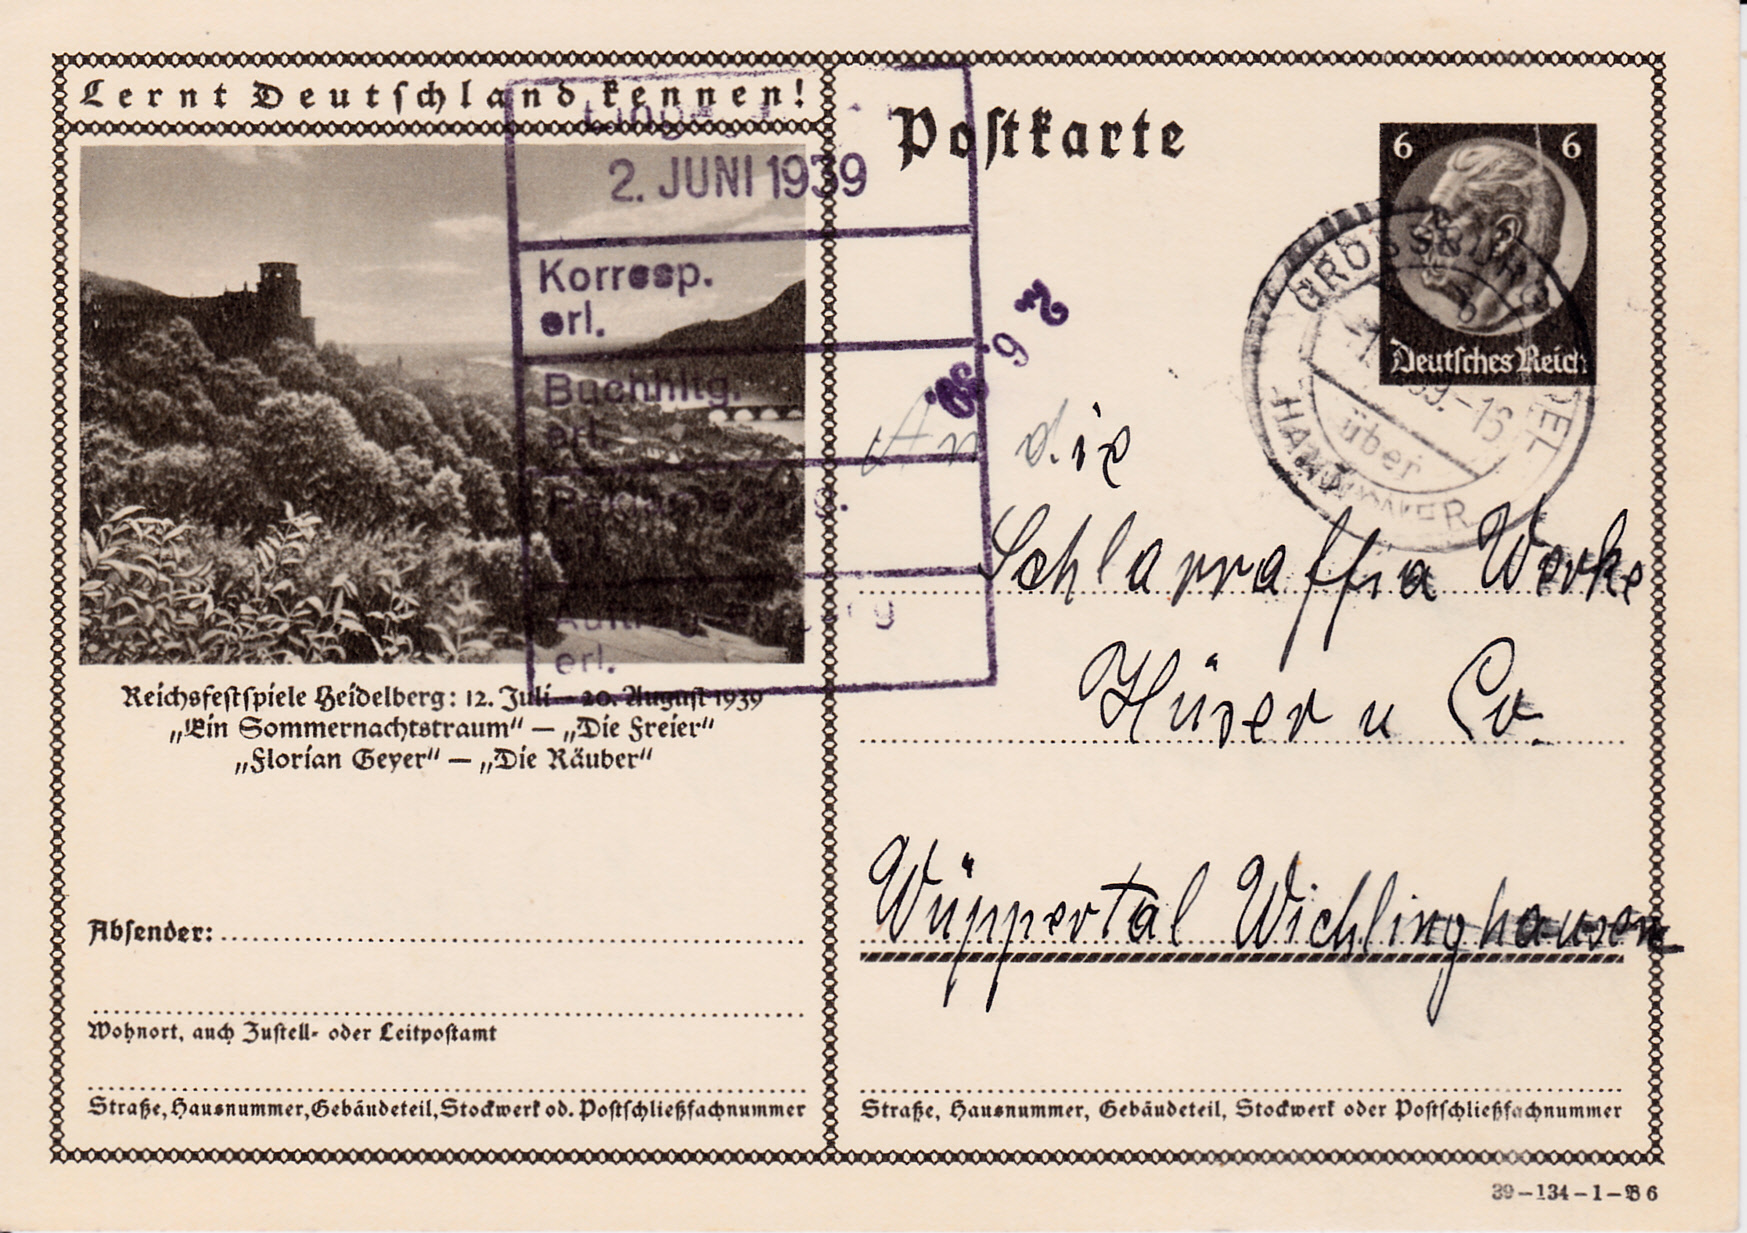 Lernt Deutschland kennen!
2. JUNI 1939
Korresp.
erl.
Buchhltg.
erl.
erl.
Reichsfestspiele Heidelberg: 12. Juli – 20. August 1939
„Ein Sommernachtstraum“ – „Die Freier“
„Florian Geyer“ – „Die Räuber“
Absender:
Wohnort, auch Zustell- oder Leitpostamt
Straße, Hausnummer, Gebäudeteil, Stockwerk od. Postschließfachnummer
Postkarte
6 6
Deutsches Reich
über
An die
Schlarraffia Werke
Hüser u Co.
Wuppertal Wichlinghausen
Straße, Hausnummer, Gebäudeteil, Stockwerk oder Postschließfachnummer
39–134–1–B 6